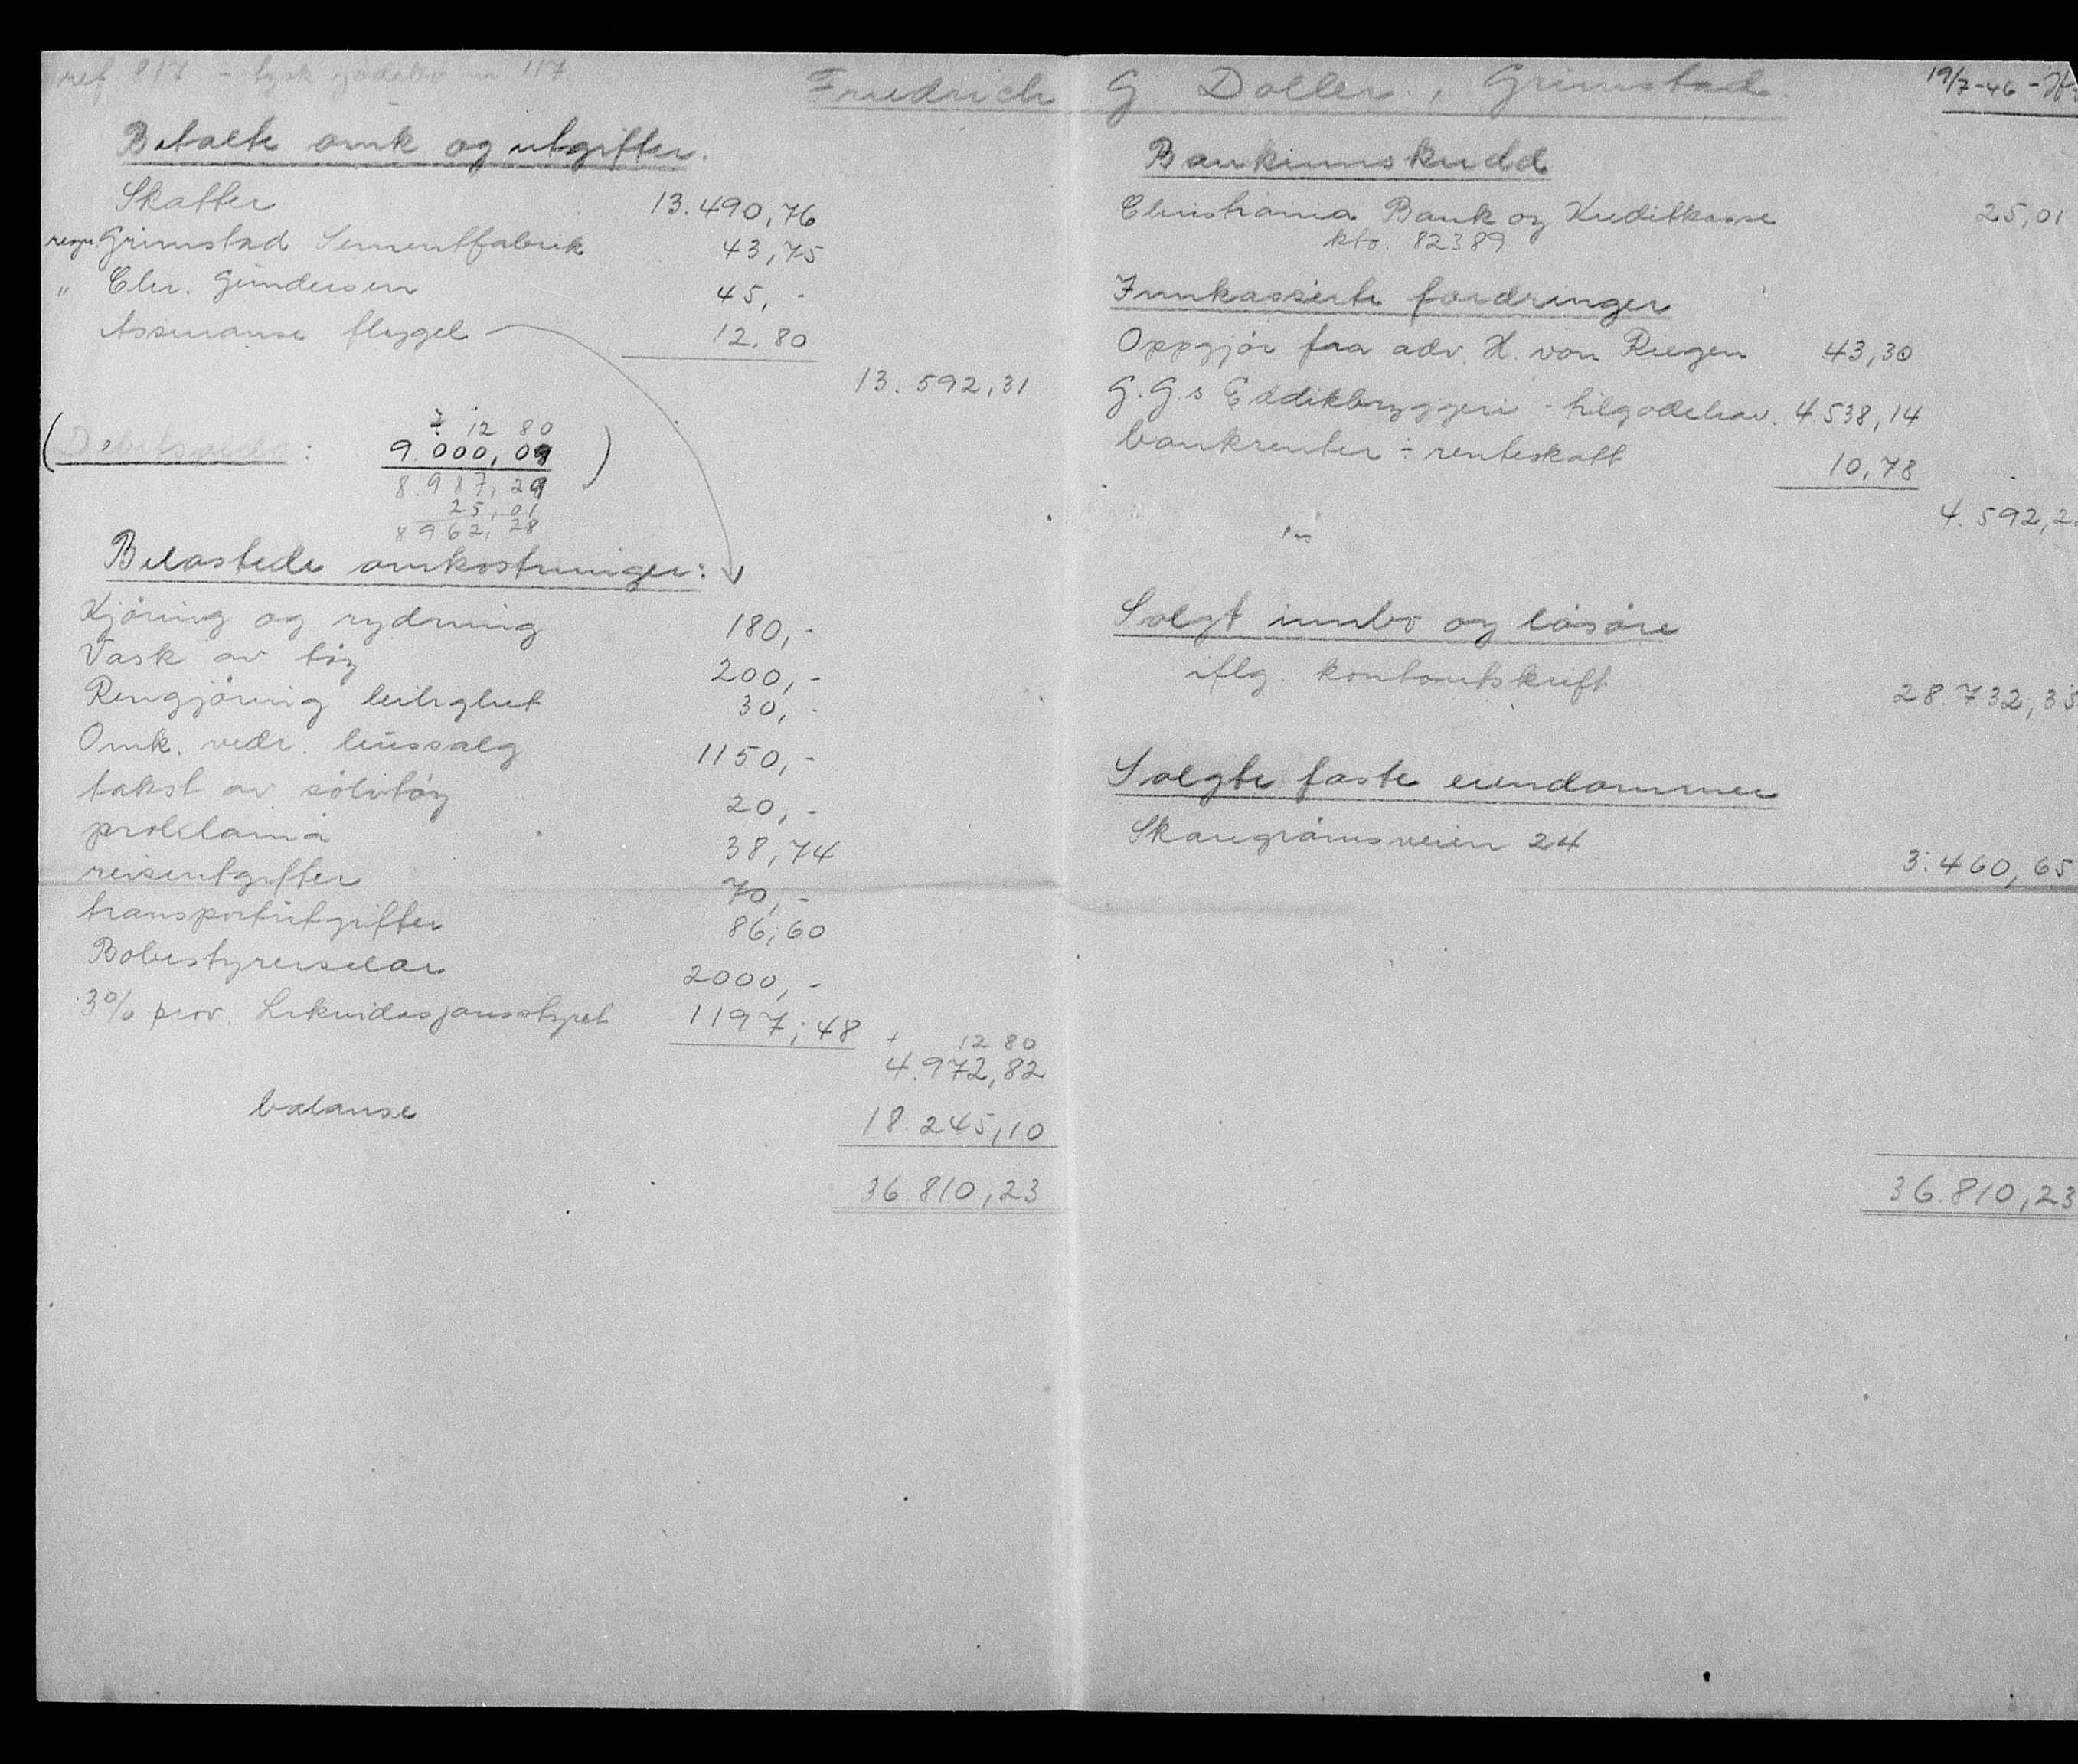 ref 817 - tysk jødebo nr 117
Friedrich G Doller, Grimstad.
19/7-46 -
Betalte omk og utgifter.
Skatter 13.490,76
regn. Grimstad Sementfabrik 43,75
" Chr. Gundersen 45,-
Assuranse flygel 12.80
13.592,31
(Debetsaldo: 9.000,09)
÷ 12 80
8.987,29
25,01
8962,28
Belastede omkostninger:
Kjøring og rydning 180,-
Vask av tøy 200,-
Rengjøring leilighet 30,-
Omk. vedr. hussalg 1150,-
takst av sølvtøy 20,-
proklama 38,74
reiseutgifter 70,-
transportutgifter 86,60
Bobestyrerselar 2000,-
3% prov. Likvidasjonsstyret 1197,48
+ 12 80
4.972,82
balanse 18.245,10
36.810,23
Bankinnskudd
Christiania Bank og Kreditkasse 25,01
kto. 82389
Innkasserte fordringer
Oppgjør fra adv. H. von Krogen 43,30
G.G.s Eddikbryggeri - tilgodehav. 4.538,14
bankrenter ÷ renteskatt 10,78
4.592,2
Solgt innbo og løsøre
iflg. kontoutskrift 28.732,35
Solgte faste eiendommer
Skaregrømsveien 24 3.460,65
36.810,23